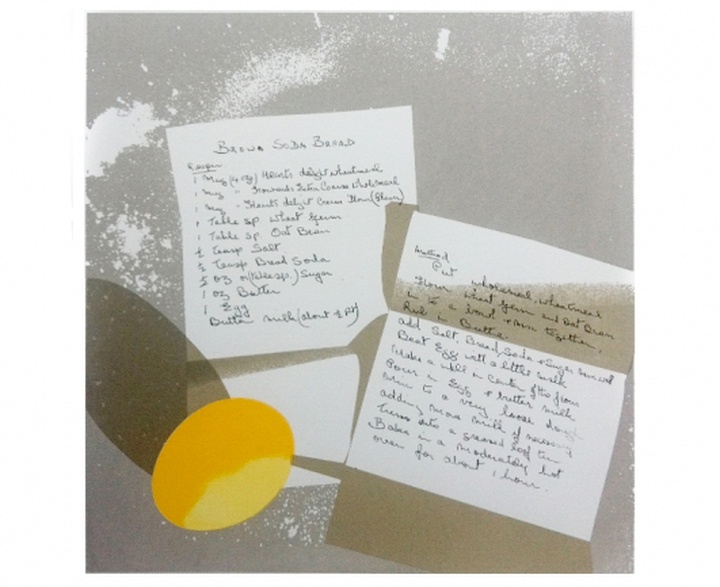 Brown Soda Bread
Recipe
1 Mug (4 oz) Hearts delight wheatmeal
1 Mug " Howards Extra Coarse Wholemeal
1 Mug " Hearts delight Cream Flour (Plain)
1 Table sp. Wheat Germ
1 Table sp. Oat Bran
½ Teasp Salt
½ Teasp Bread Soda
½ oz or (tablesp.) Sugar
1 oz Butter
1 Egg
Butter milk (about ½ Pt)
Method
Put wholemeal, wheatmeal
Flour wheat Germ and Oat Bran
in to a bowl + mix together,
Rub in Butter
add Salt, Bread Soda + Sugar
Beat Egg with a little milk
Make a well in center of the flour
Pour in Egg + butter milk
mix to a very loose dough
adding more milk if necessary
Turn into a greased loaf tin
Bake in a moderately hot
oven for about 1 hour.